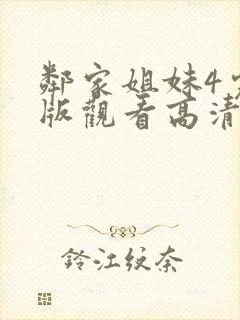 鄰家姐妹4
版觀看高清
鈴江紋奈